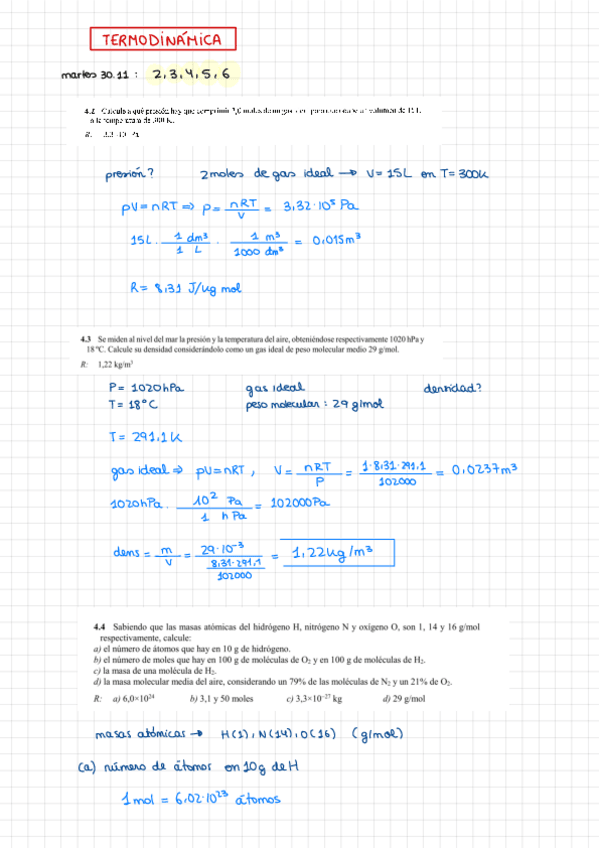 TERMODINÁMICA
martes 30.11 : 2,3,4,5,6
4.2 Calcule a qué presión hay que comprimir 2,0 moles de un gas para que ocupe un volumen de 15 L
a la temperatura de 300 K.
R:
presión? 2 moles de gas ideal → V= 15L en T= 300K
pV = nRT ⇒ p = nRT / V = 3,32·10⁵ Pa
15L · 1 dm³ / 1 L · 1 m³ / 1000 dm³ = 0,015m³
R = 8,31 J/kg mol
4.3 Se miden al nivel del mar la presión y la temperatura del aire, obteniéndose respectivamente 1020 hPa y
18 ºC. Calcule su densidad considerándolo como un gas ideal de peso molecular medio 29 g/mol.
R: 1,22 kg/m³
P = 1020 hPa gas ideal densidad?
T = 18°C peso molecular : 29 g/mol
T = 291,1 K
gas ideal ⇒ pV = nRT , V = nRT / P = 1·8,31·291,1 / 102000 = 0,0237m³
1020hPa · 10² Pa / 1 hPa = 102000Pa
dens = m / V = 29·10⁻³ / 8,31·291,1 / 102000 = 1,22kg/m³
4.4 Sabiendo que las masas atómicas del hidrógeno H, nitrógeno N y oxígeno O, son 1, 14 y 16 g/mol
respectivamente, calcule:
a) el número de átomos que hay en 10 g de hidrógeno.
b) el número de moles que hay en 100 g de moléculas de O₂ y en 100 g de moléculas de H₂.
c) la masa de una molécula de H₂.
d) la masa molecular media del aire, considerando un 79% de las moléculas de N₂ y un 21% de O₂.
R: a) 6,0×10²⁴ b) 3,1 y 50 moles c) 3,3×10⁻²⁷ kg d) 29 g/mol
masas atómicas → H(1), N(14), O(16) (g/mol)
(a) número de átomos en 10g de H
1 mol = 6,02·10²³ átomos